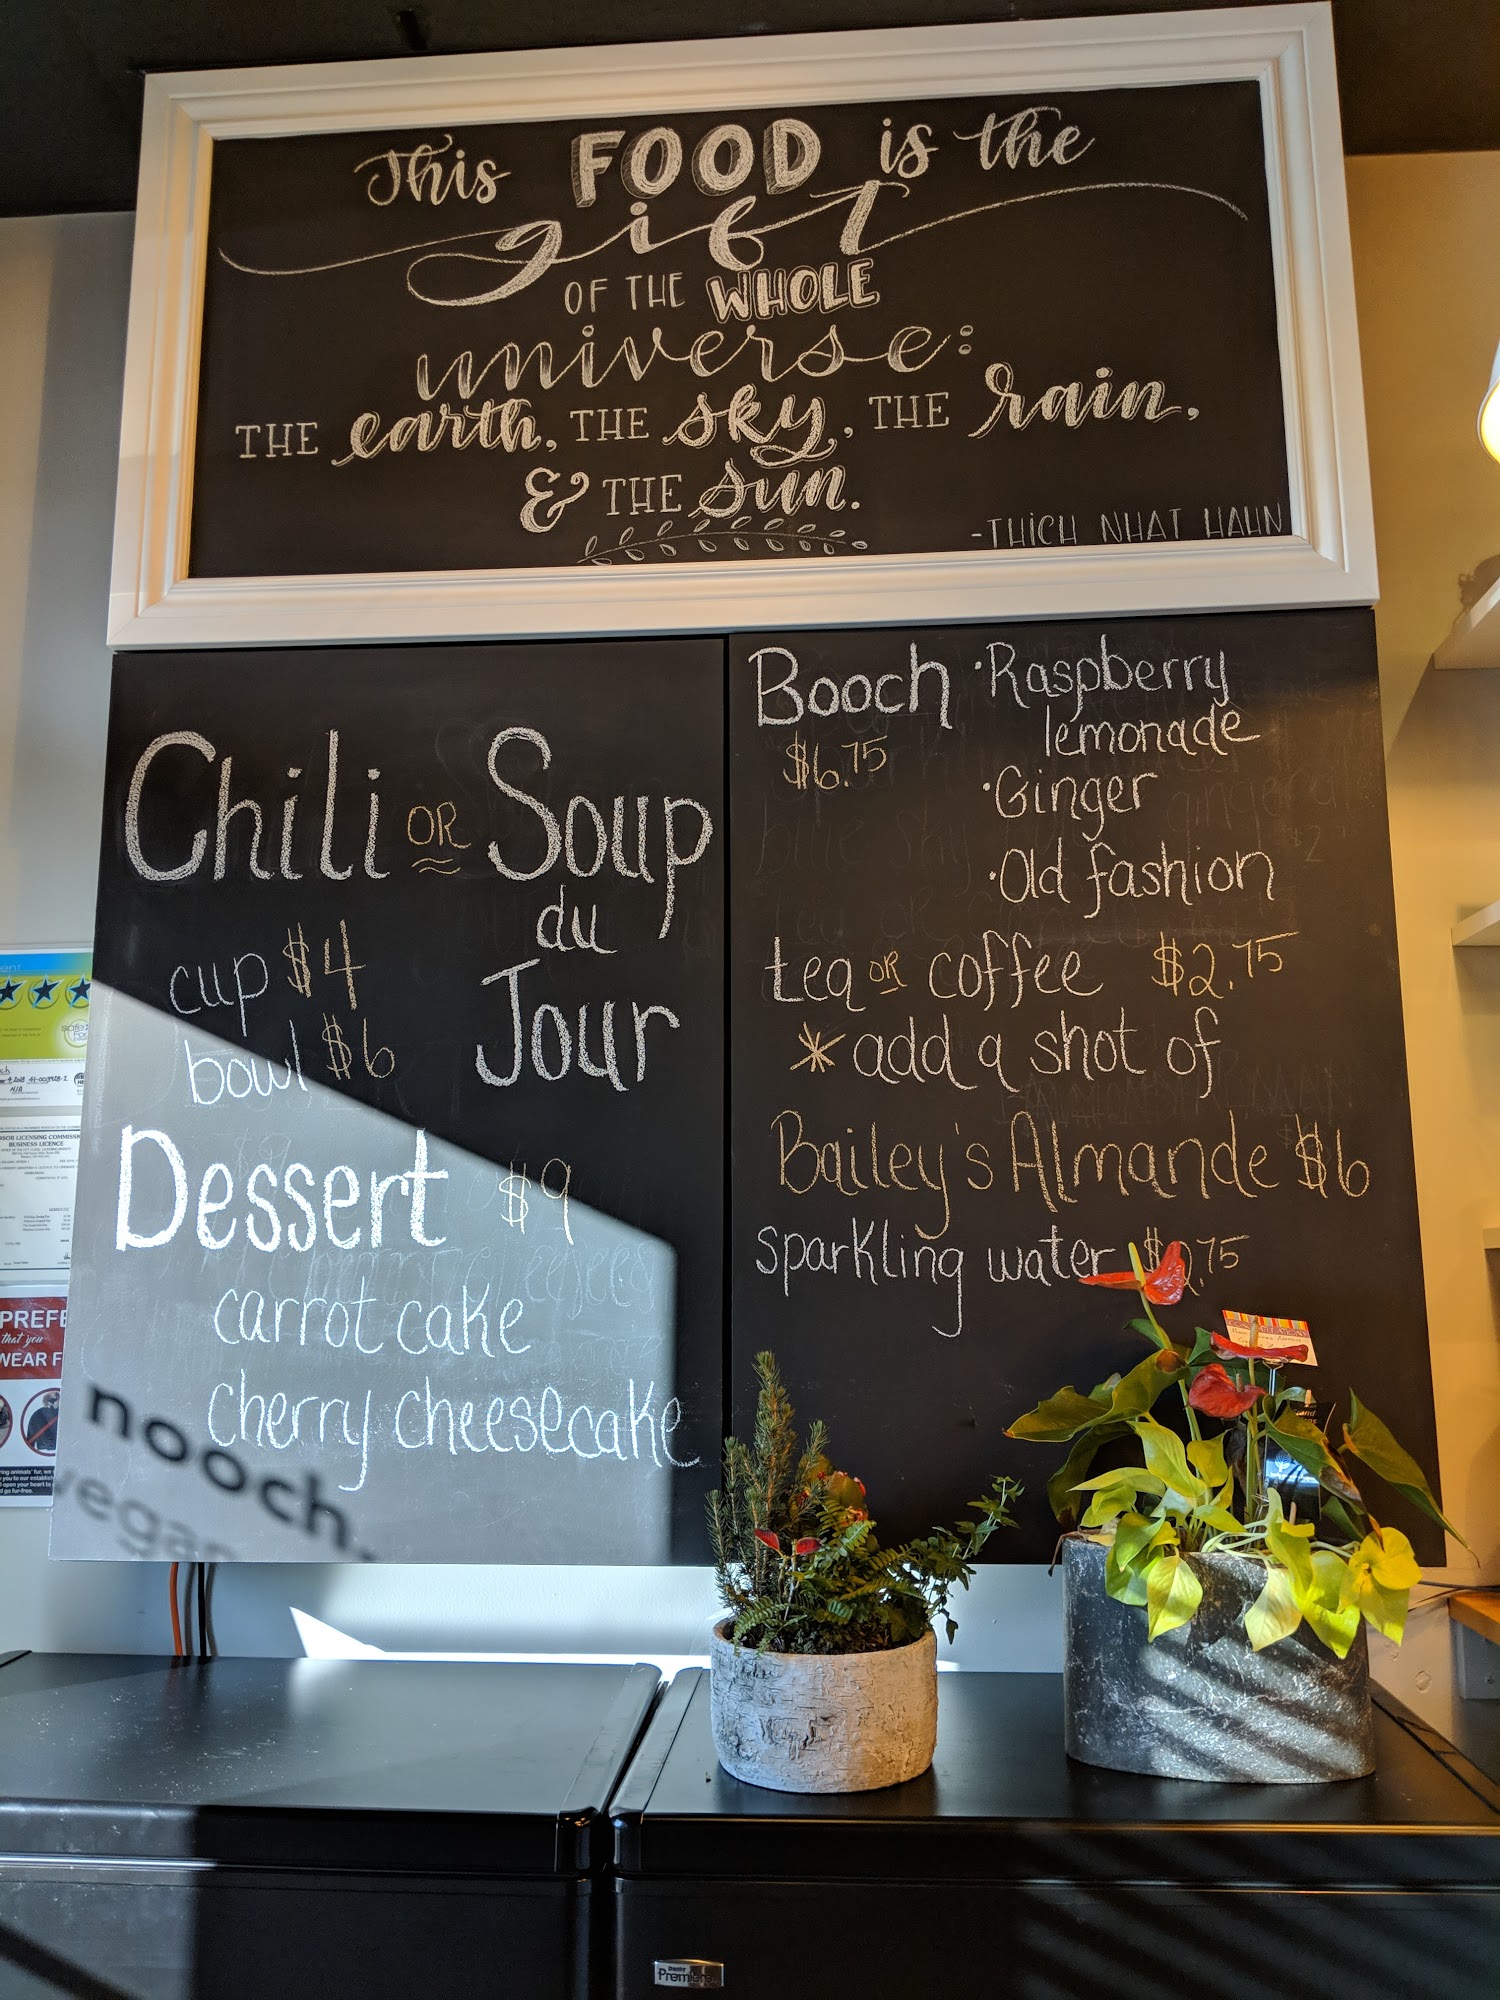 This FOOD is the
gift
OF THE WHOLE
universe:
THE earth, THE sky, THE rain,
& THE sun.
-THICH NHAT HAHN
Chili OR Soup
du
Jour
cup $4
bowl $6
Dessert $9
carrot cake
cherry cheesecake
Booch
$6.75
·Raspberry
lemonade
·Ginger
·Old fashion
tea OR coffee $2.75
*add a shot of
Bailey's Almande $6
sparkling water $2.75
nooch.
vegan
BUSINESS LICENCE
PREFE
that you
WEAR F
Danby
Premiere